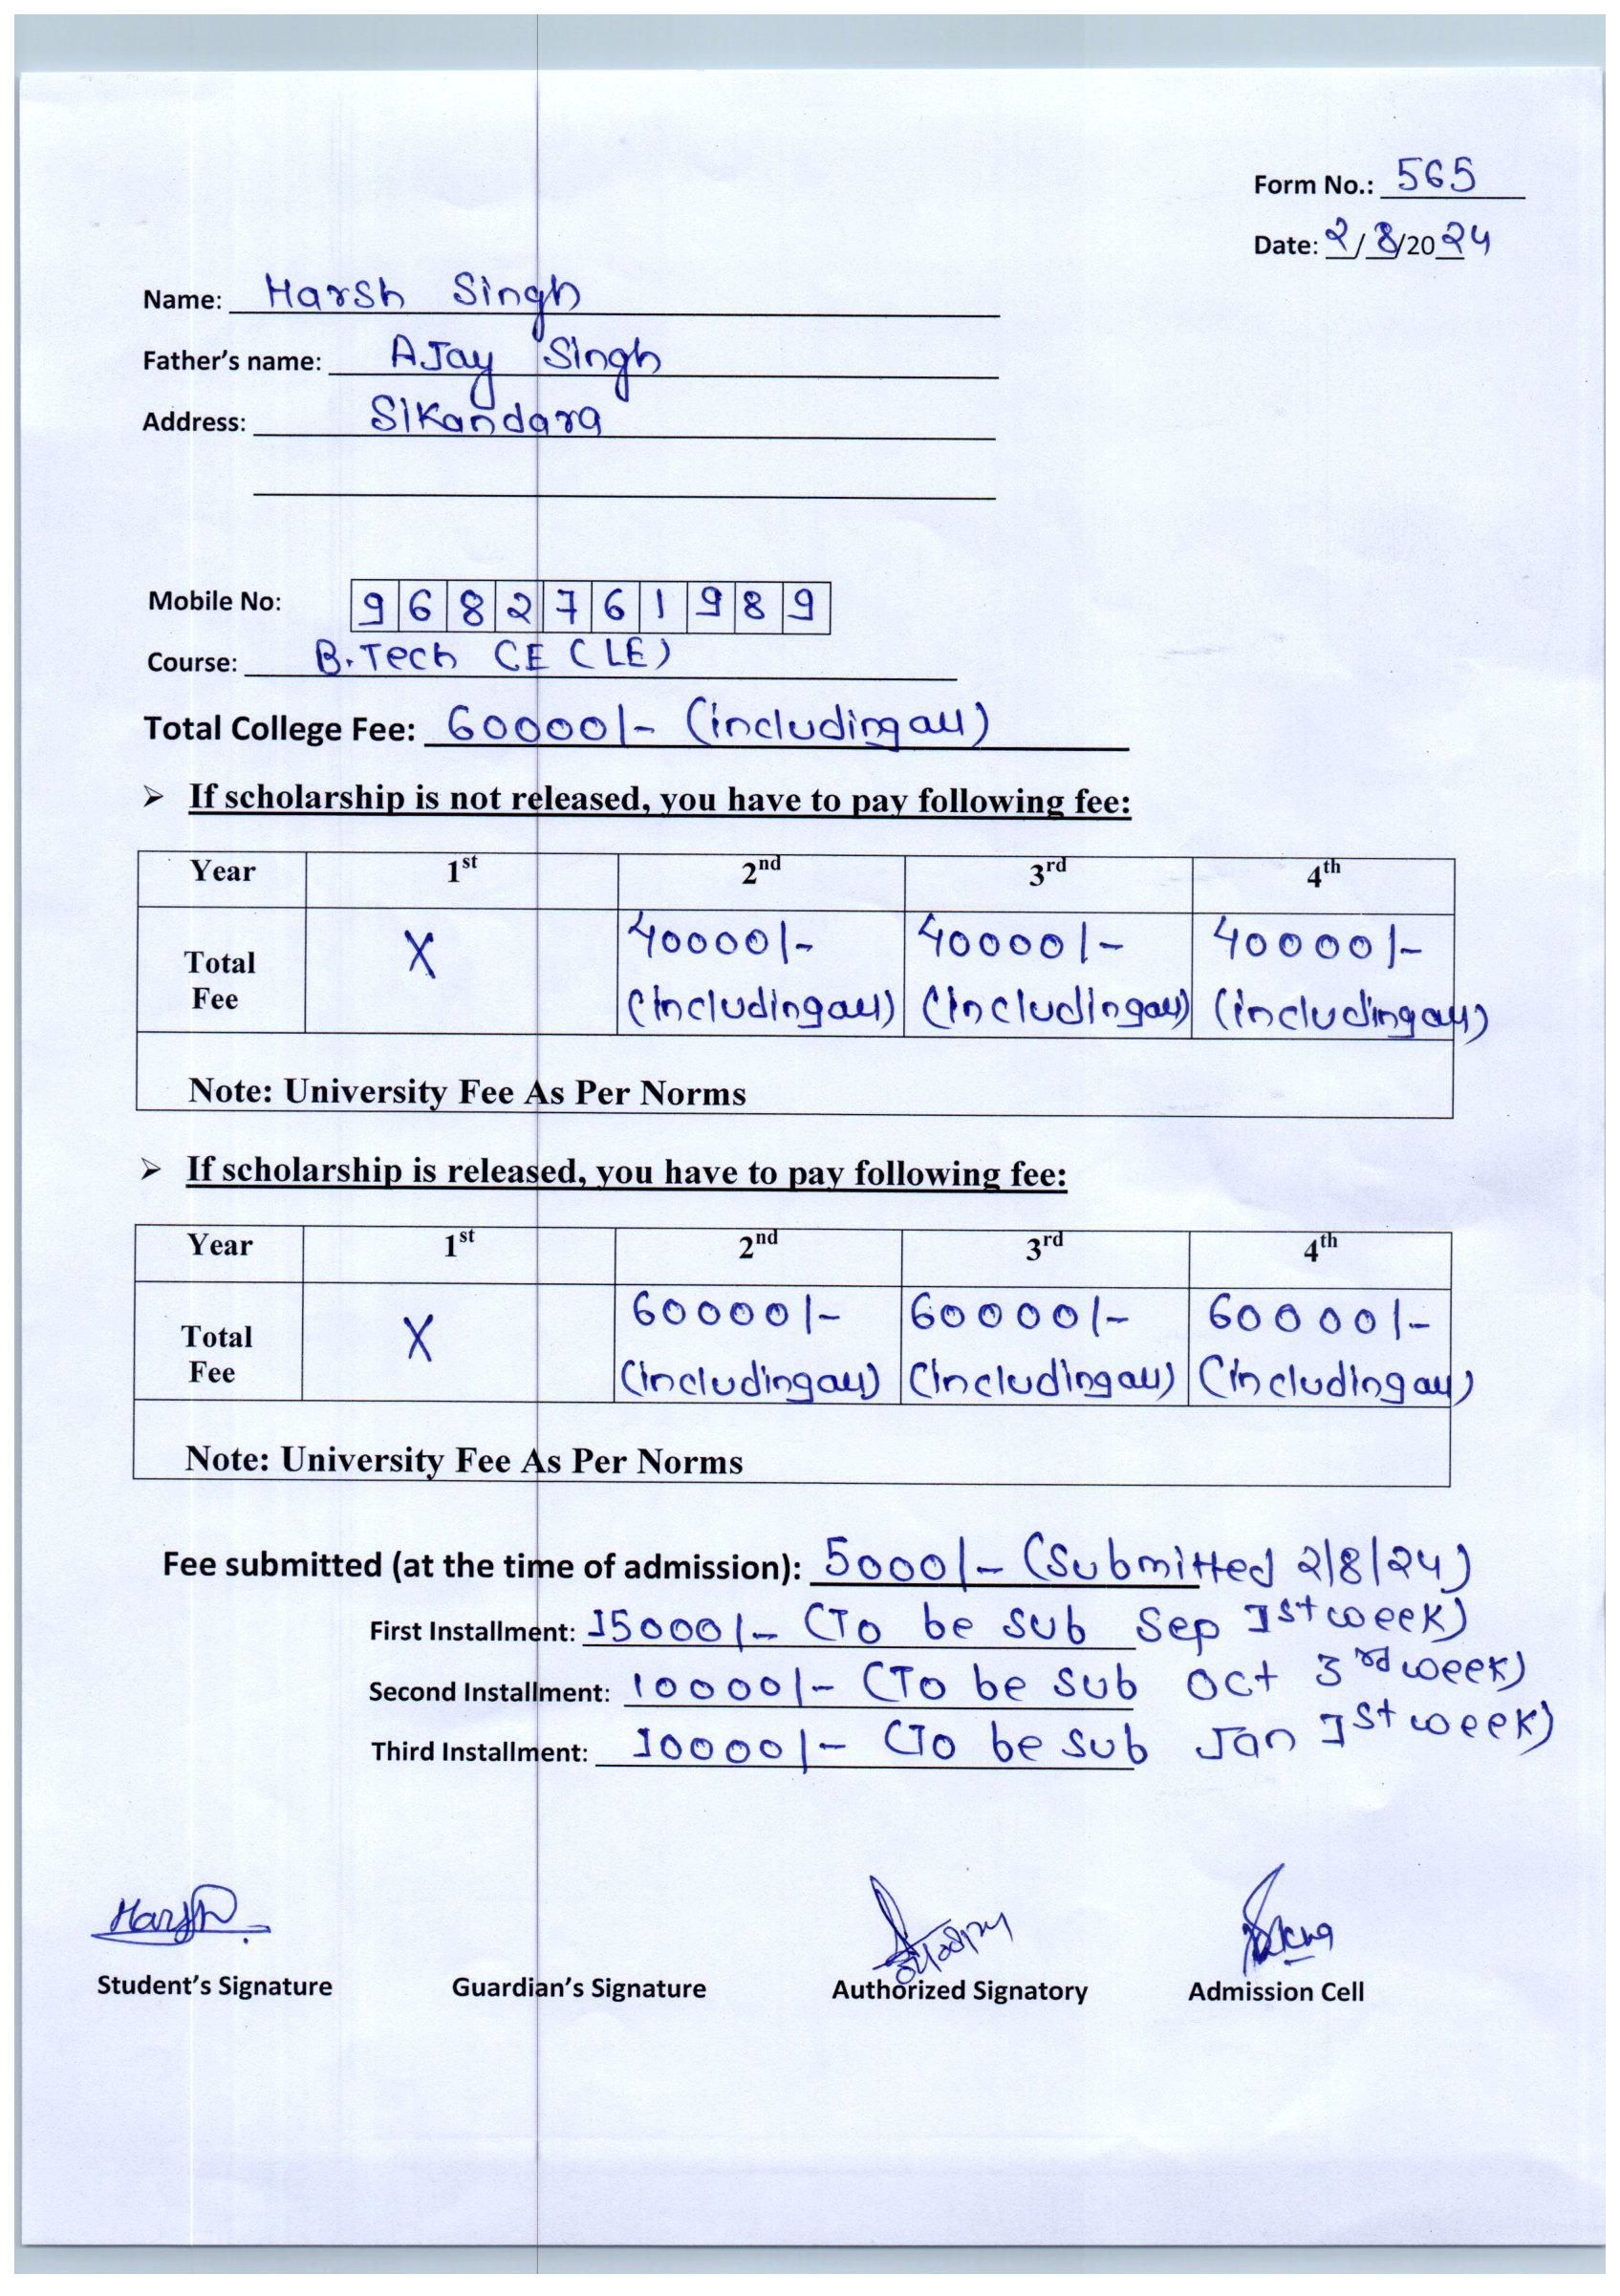 Form No.: 565
Date: 2/8/2024
Name: Harsh Singh
Father's name: AJay Singh
Address: Sikandara
Mobile No: 9682761989
Course: B.Tech CE (LE)
Total College Fee: 60000/- (including all)
➢ If scholarship is not released, you have to pay following fee:
Year 1st 2nd 3rd 4th
Total Fee X 40000/- (including all) 40000/- (including all) 40000/- (including all)
Note: University Fee As Per Norms
➢ If scholarship is released, you have to pay following fee:
Year 1st 2nd 3rd 4th
Total Fee X 60000/- (including all) 60000/- (including all) 60000/- (including all)
Note: University Fee As Per Norms
Fee submitted (at the time of admission): 5000/- (Submitted 2/8/24)
First Installment: 15000/- (To be sub Sep 1st week)
Second Installment: 10000/- (To be sub Oct 3rd week)
Third Installment: 10000/- (To be sub Jan 1st week)
Harsh
Student's Signature Guardian's Signature Authorized Signatory Admission Cell